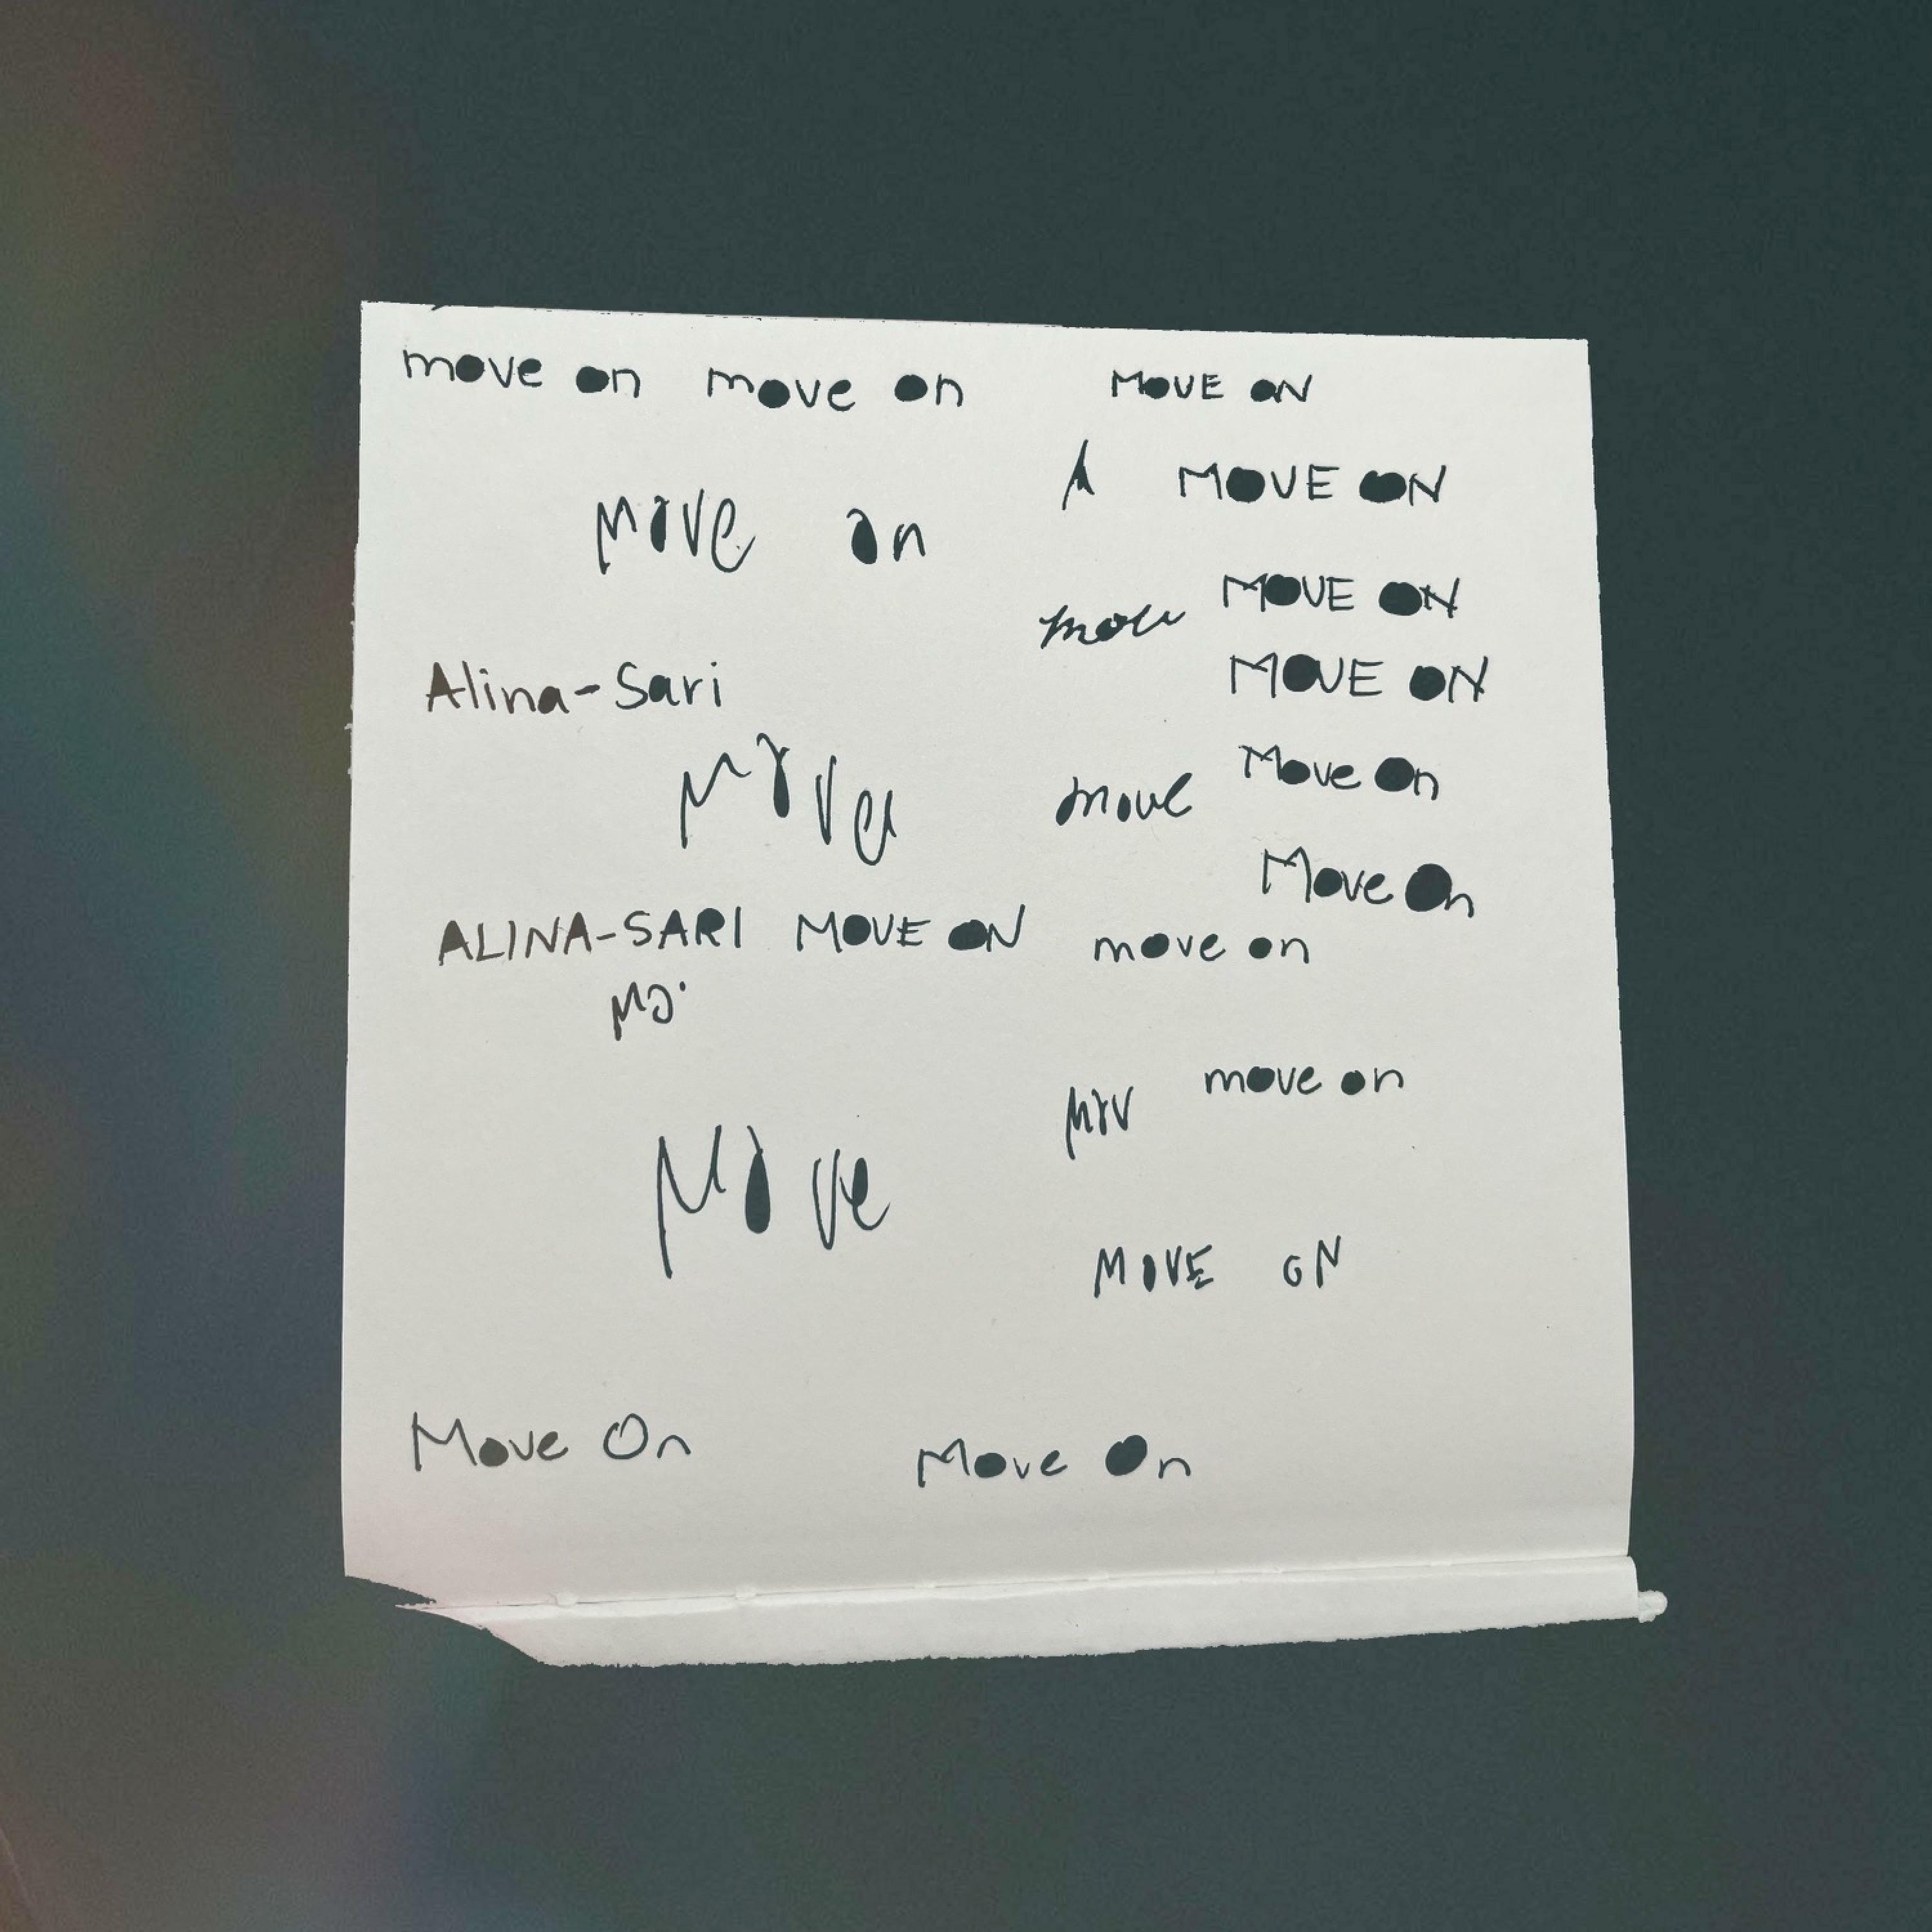 move on move on MOVE ON
MOVE ON
move on
MOVE ON
move
Alina-Sari
MOVE ON
Move On
move
Move On
ALINA-SARI MOVE ON
move on
move on
Move
MOVE ON
Move On
Move On